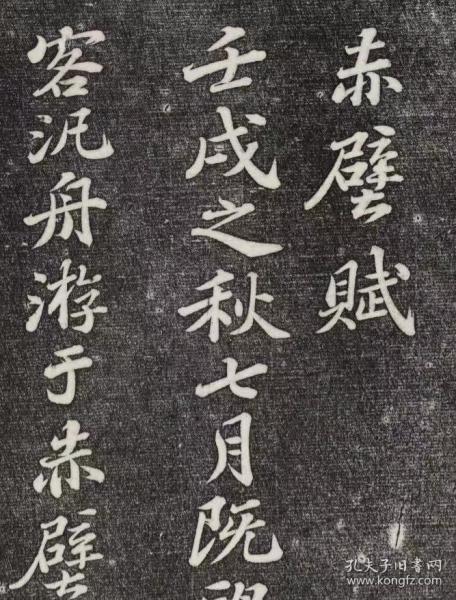 赤壁賦
壬戌之秋七月既望
客汎舟游于赤壁
孔夫子旧书网
www.kongfz.com